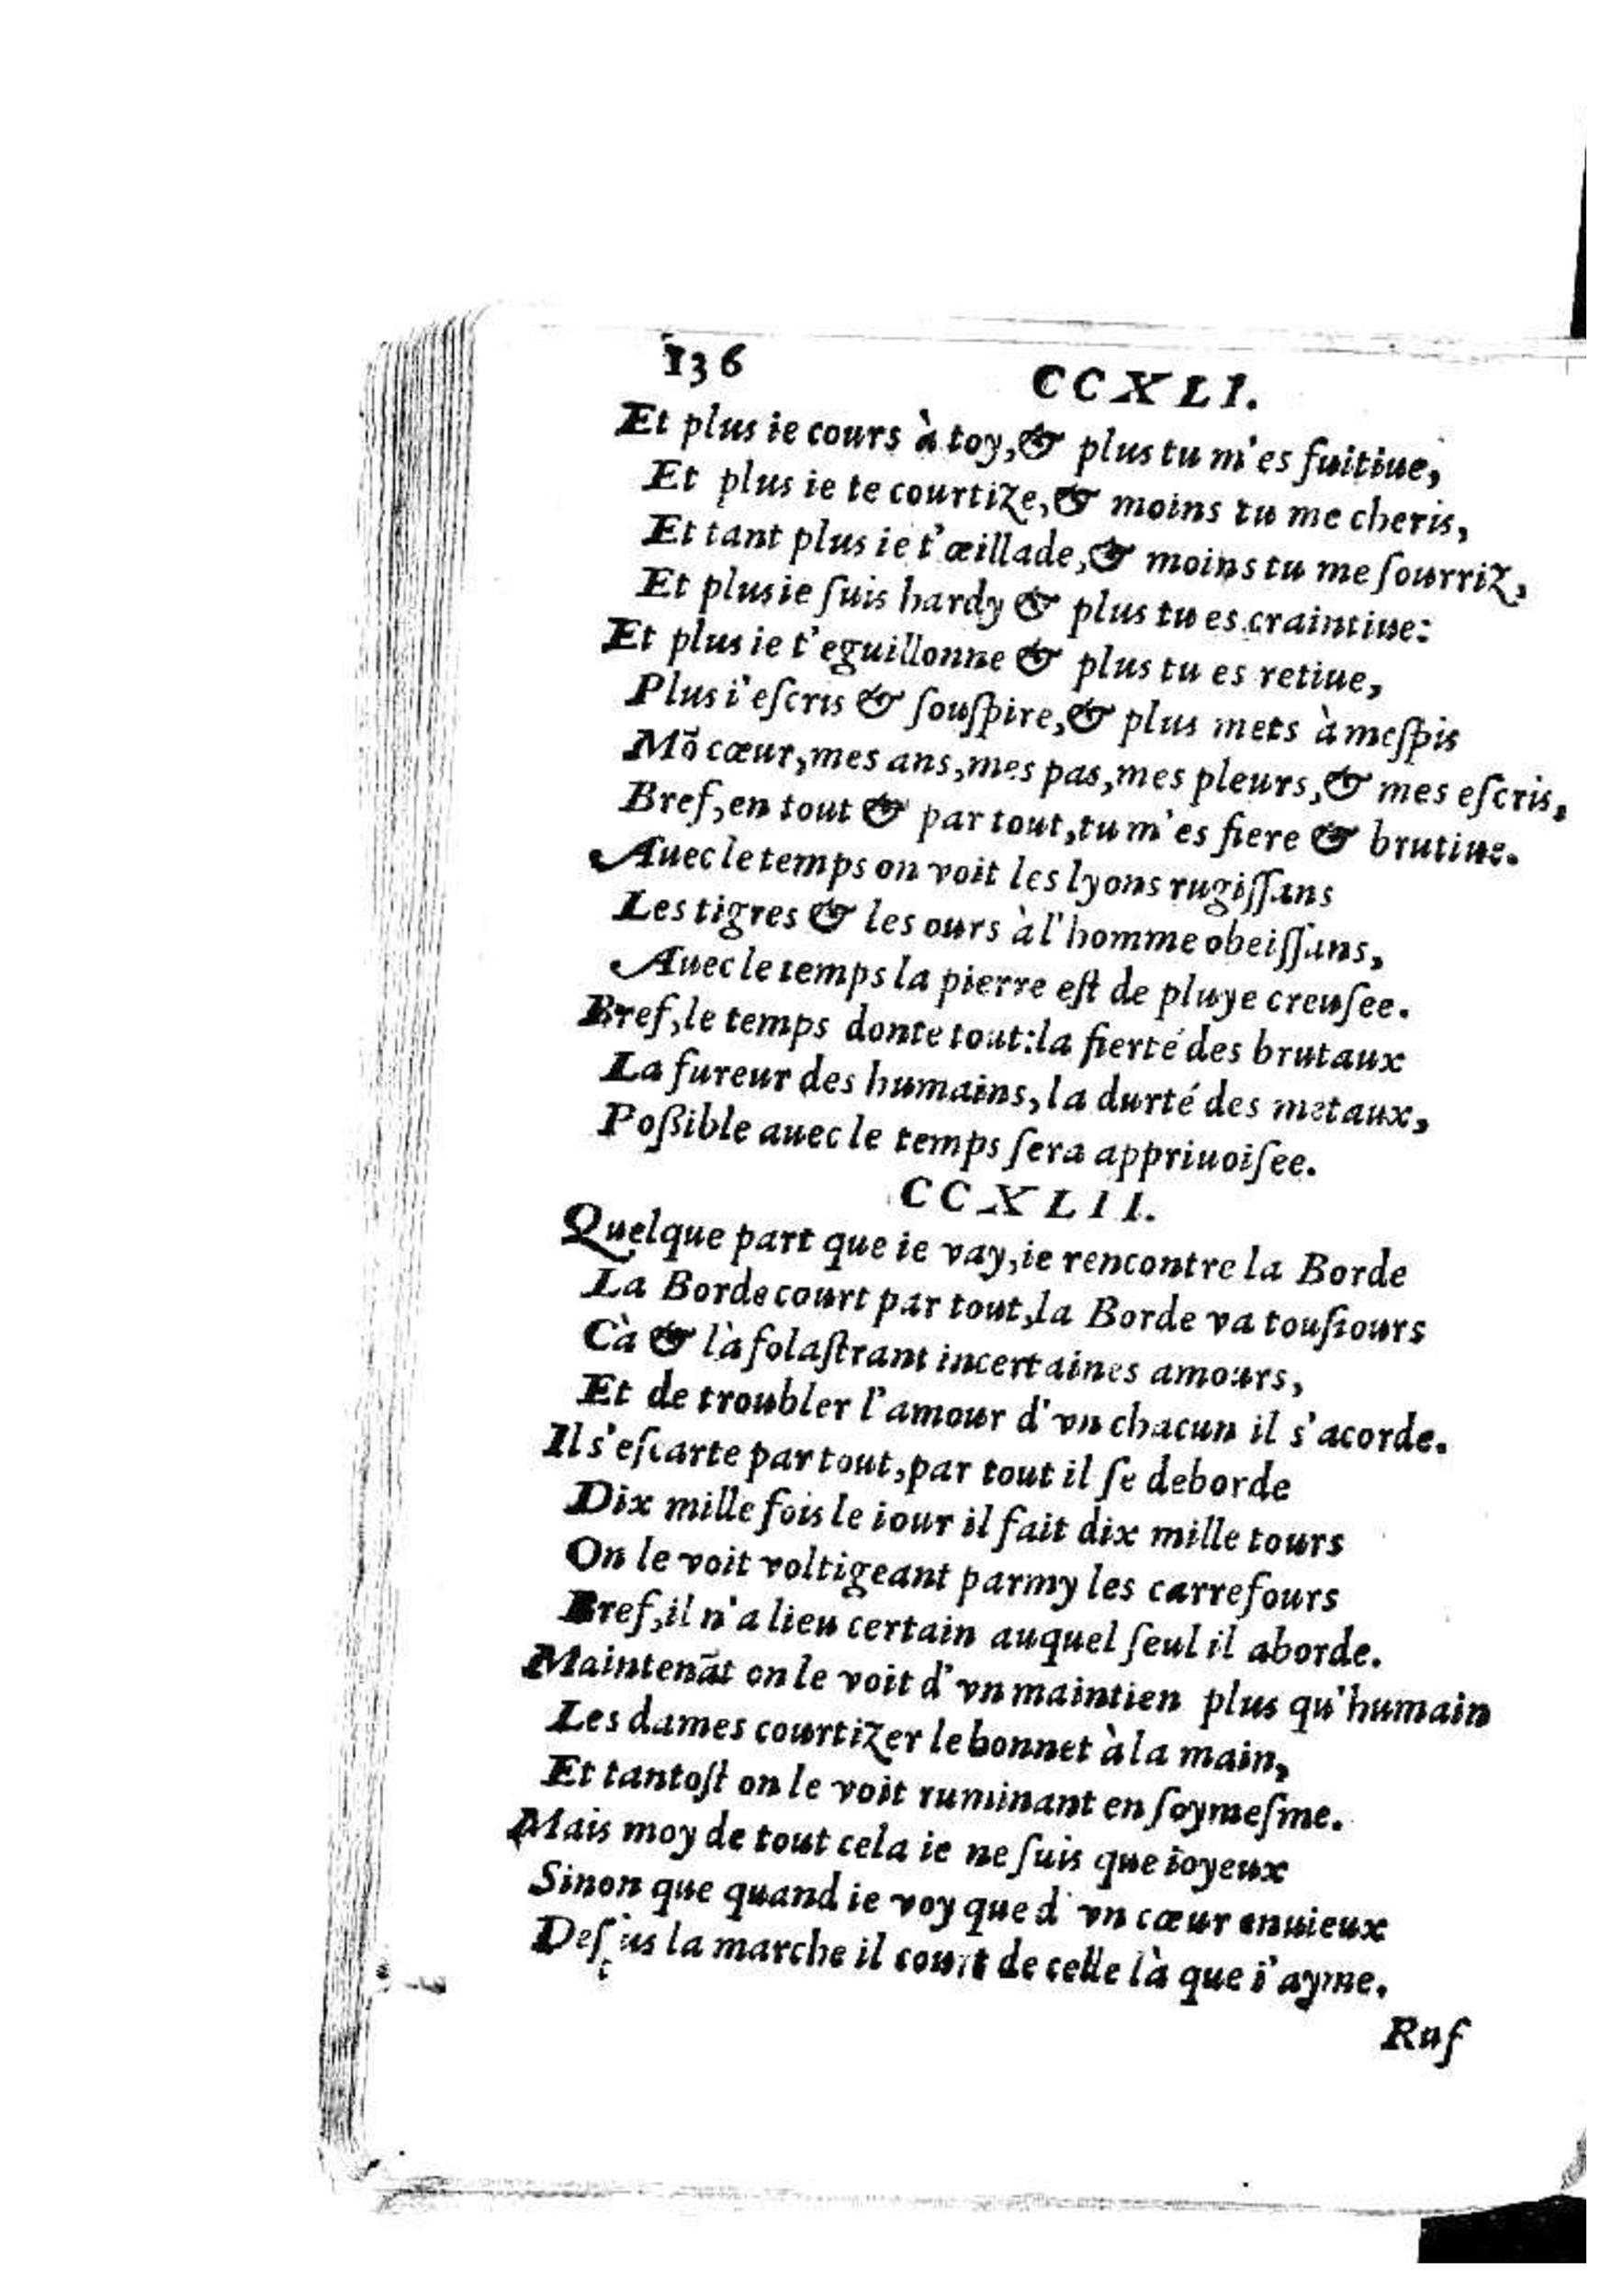 136
CCXLI.
Et plus ie cours à toy, & plus tu m'es fuitiue,
Et plus ie te courtize, & moins tu me cheris,
Et tant plus ie t'œillade, & moins tu me ſourriz,
Et plus ie ſuis hardy & plus tu es craintiue:
Et plus ie t'eguillonne & plus tu es retiue,
Plus i'eſcris & ſouſpire, & plus mets à meſpis
Mõ cœur, mes ans, mes pas, mes pleurs, & mes eſcris,
Bref, en tout & par tout, tu m'es fiere & brutiue.
Auec le temps on voit les lyons rugiſſans
Les tigres & les ours à l'homme obeiſſans,
Auec le temps la pierre eſt de pluye creuſee.
Bref, le temps donte tout: la fierté des brutaux
La fureur des humains, la durté des metaux,
Poßible auec le temps ſera appriuoiſee.
CCXLII.
Quelque part que ie vay, ie rencontre la Borde
La Borde court par tout, la Borde va touſiours
Cà & là folaſtrant incertaines amours,
Et de troubler l'amour d'vn chacun il s'acorde.
Il s'eſcarte par tout, par tout il ſe deborde
Dix mille fois le iour il fait dix mille tours
On le voit voltigeant parmy les carrefours
Bref, il n'a lieu certain auquel ſeul il aborde.
Maintenãt on le voit d'vn maintien plus qu'humain
Les dames courtizer le bonnet à la main,
Et tantoſt on le voit ruminant en ſoymeſme.
Mais moy de tout cela ie ne ſuis que ioyeux
Sinon que quand ie voy que d'vn cœur enuieux
Deſſus la marche il court de celle là que i'ayme.
Ruſ